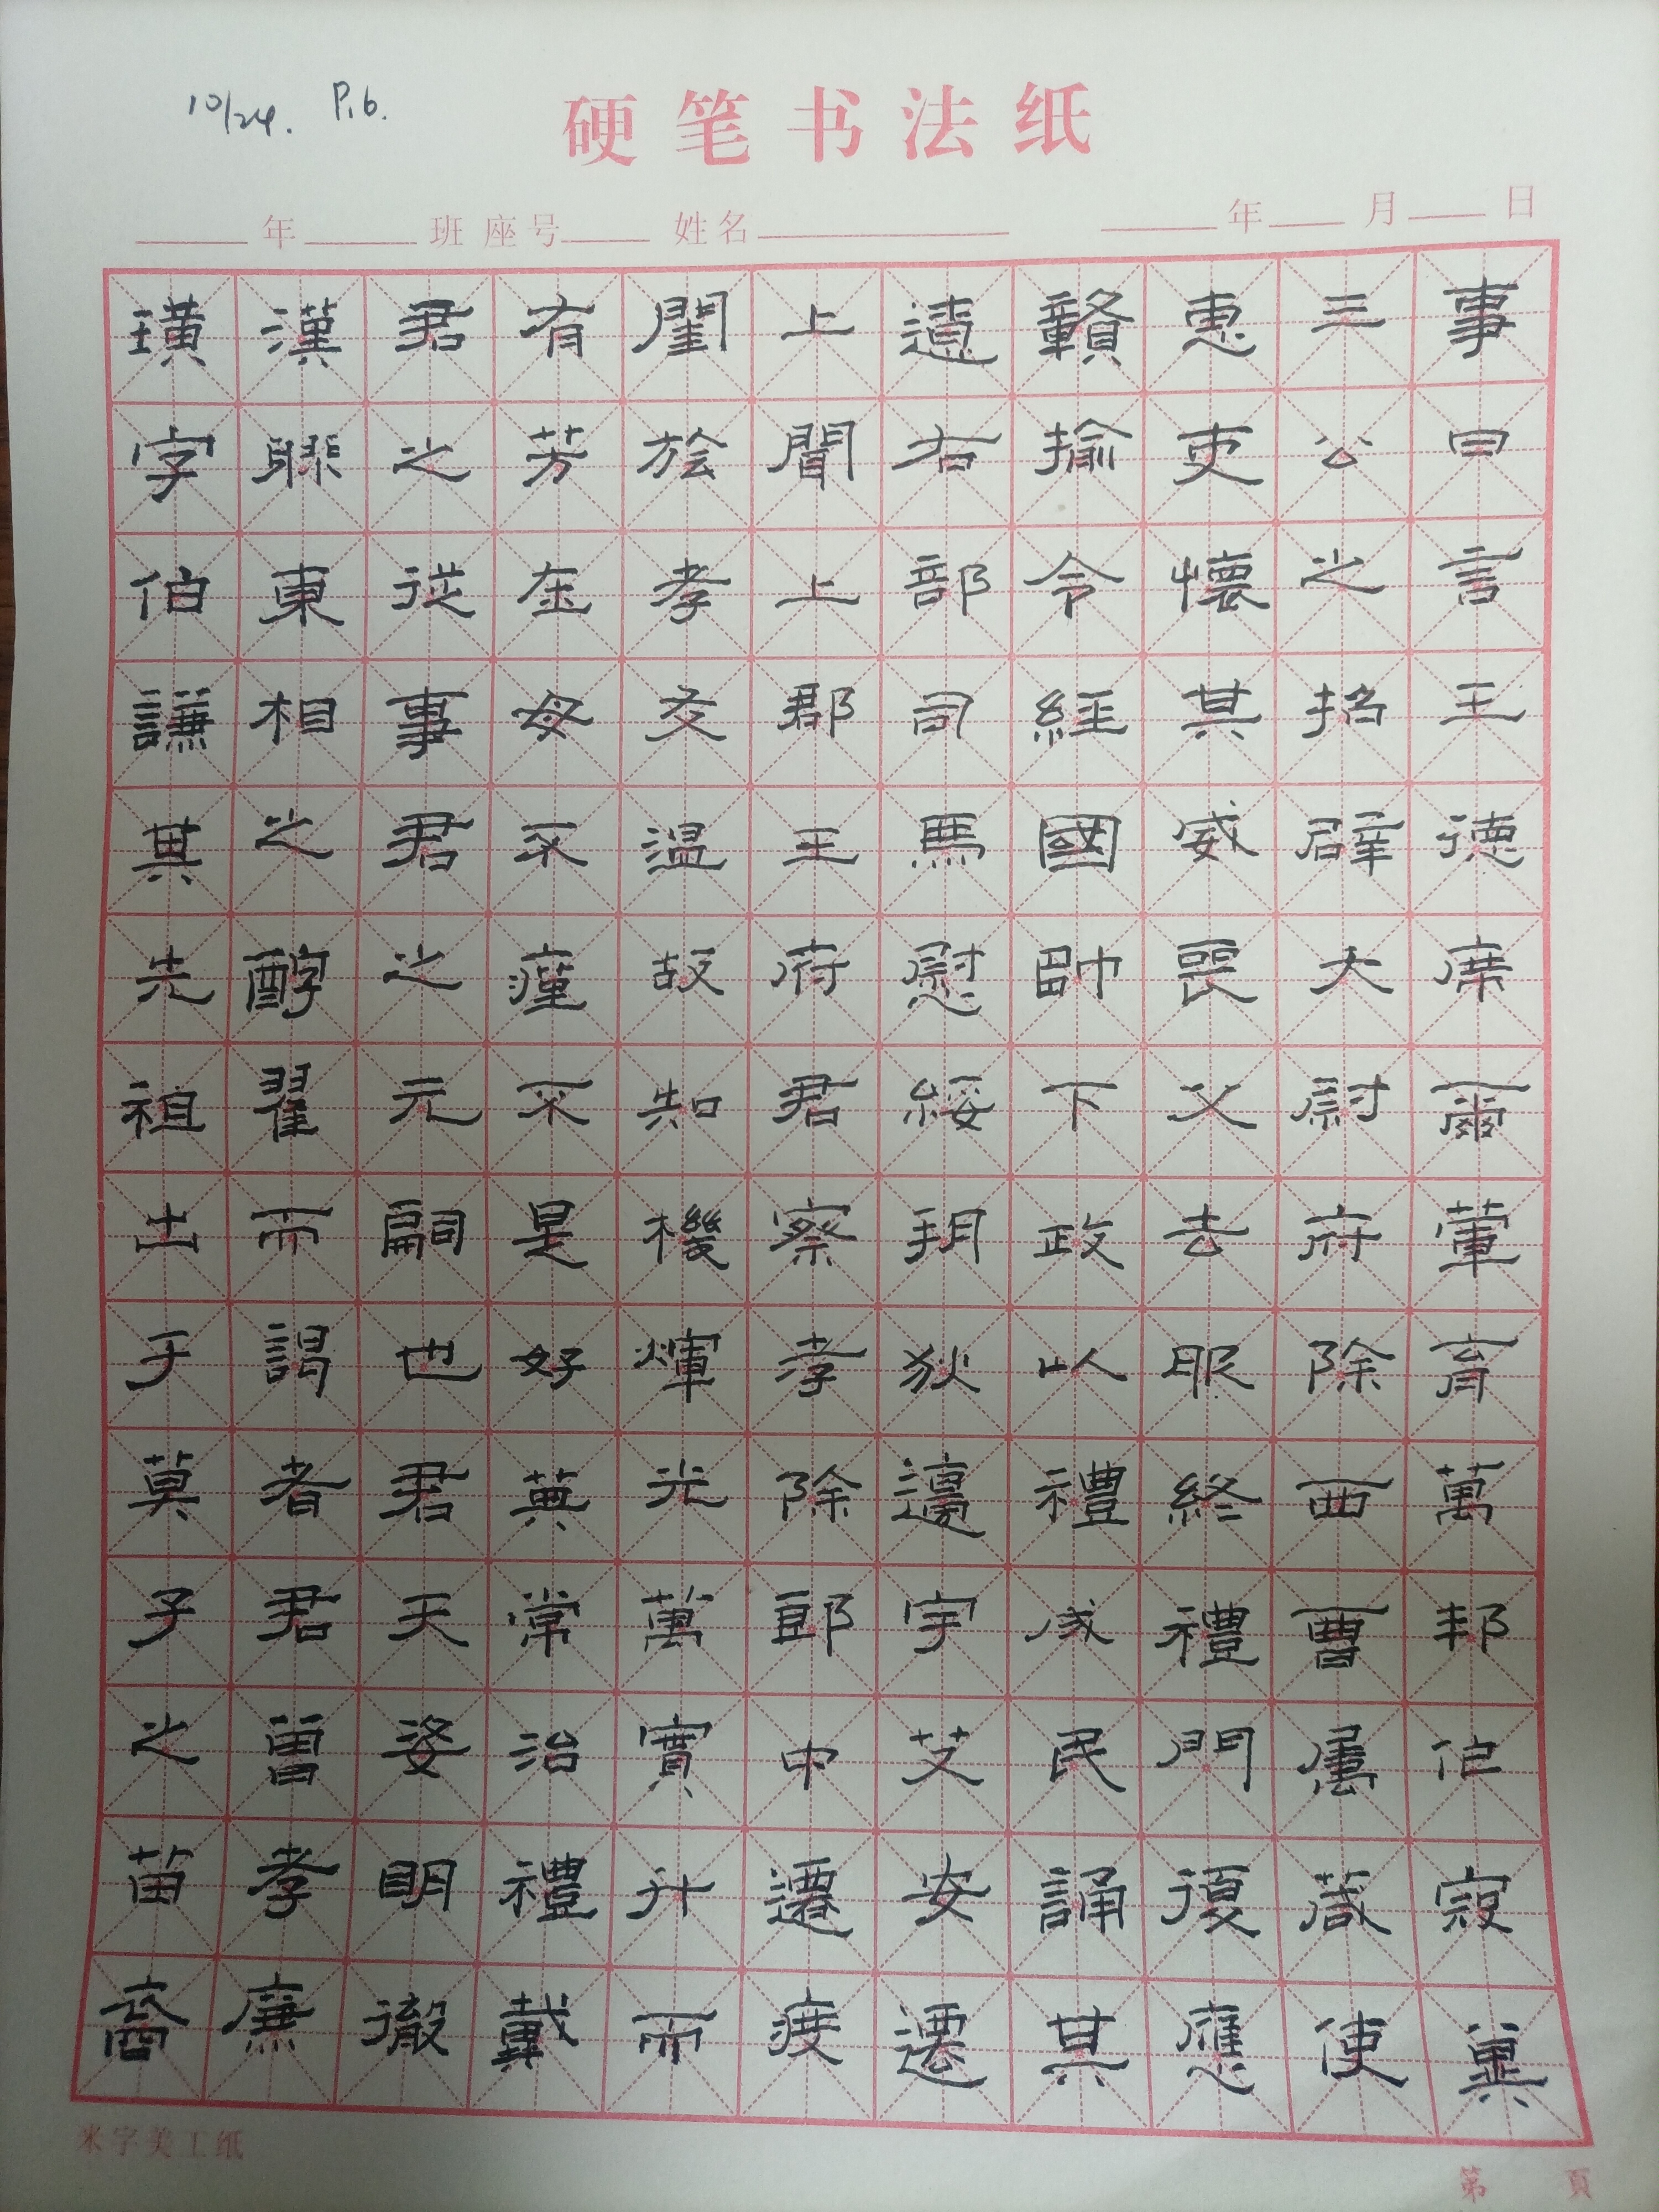 璜字伯謙其先祖出于箕子之苗裔
漢膠東相之醇曜而謁者君曾孝廉
君之從事君之元嗣也君天姿明徹
有芳在母不瘴不是好英常治禮戴
閨於孝友温故知機煇光萬實升而
上聞上郡王府君察孝除郎中遷度
遼右部司馬慰綏羽狄邊宇艾安遷
贛揄令經國帥下政以禮成民誦其
惠吏懷其威喪父去服終禮門復應
三公之招辟大尉府除西曹屬歲使
事曰言王德席爾葷育萬邦作寇冀
10/24. P.6.
硬笔书法纸
年 班 座号 姓名 年 月 日
米字美工纸
第 頁